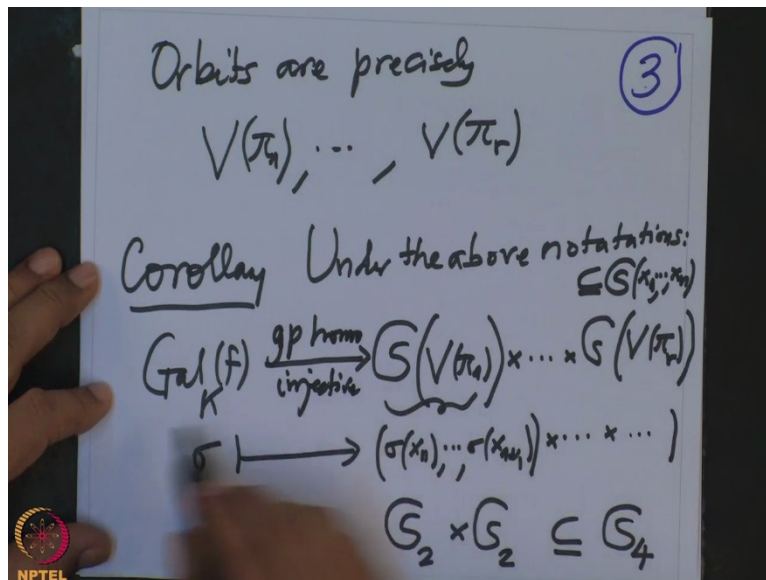 Orbits are precisely
3
V(π₁), ⋯ , V(πᵣ)
Corollay Under the above notatations:
⊆ 𝔖(x₁,⋯,xₙ)
Gal_K(f) gp homo injective → 𝔖(V(π₁)) × ⋯ × 𝔖(V(πᵣ))
σ ↦ (σ(x₁₁),⋯,σ(x₁ₙ₁)) × ⋯ × ⋯ )
𝔖₂ × 𝔖₂ ⊆ 𝔖₄
NPTEL